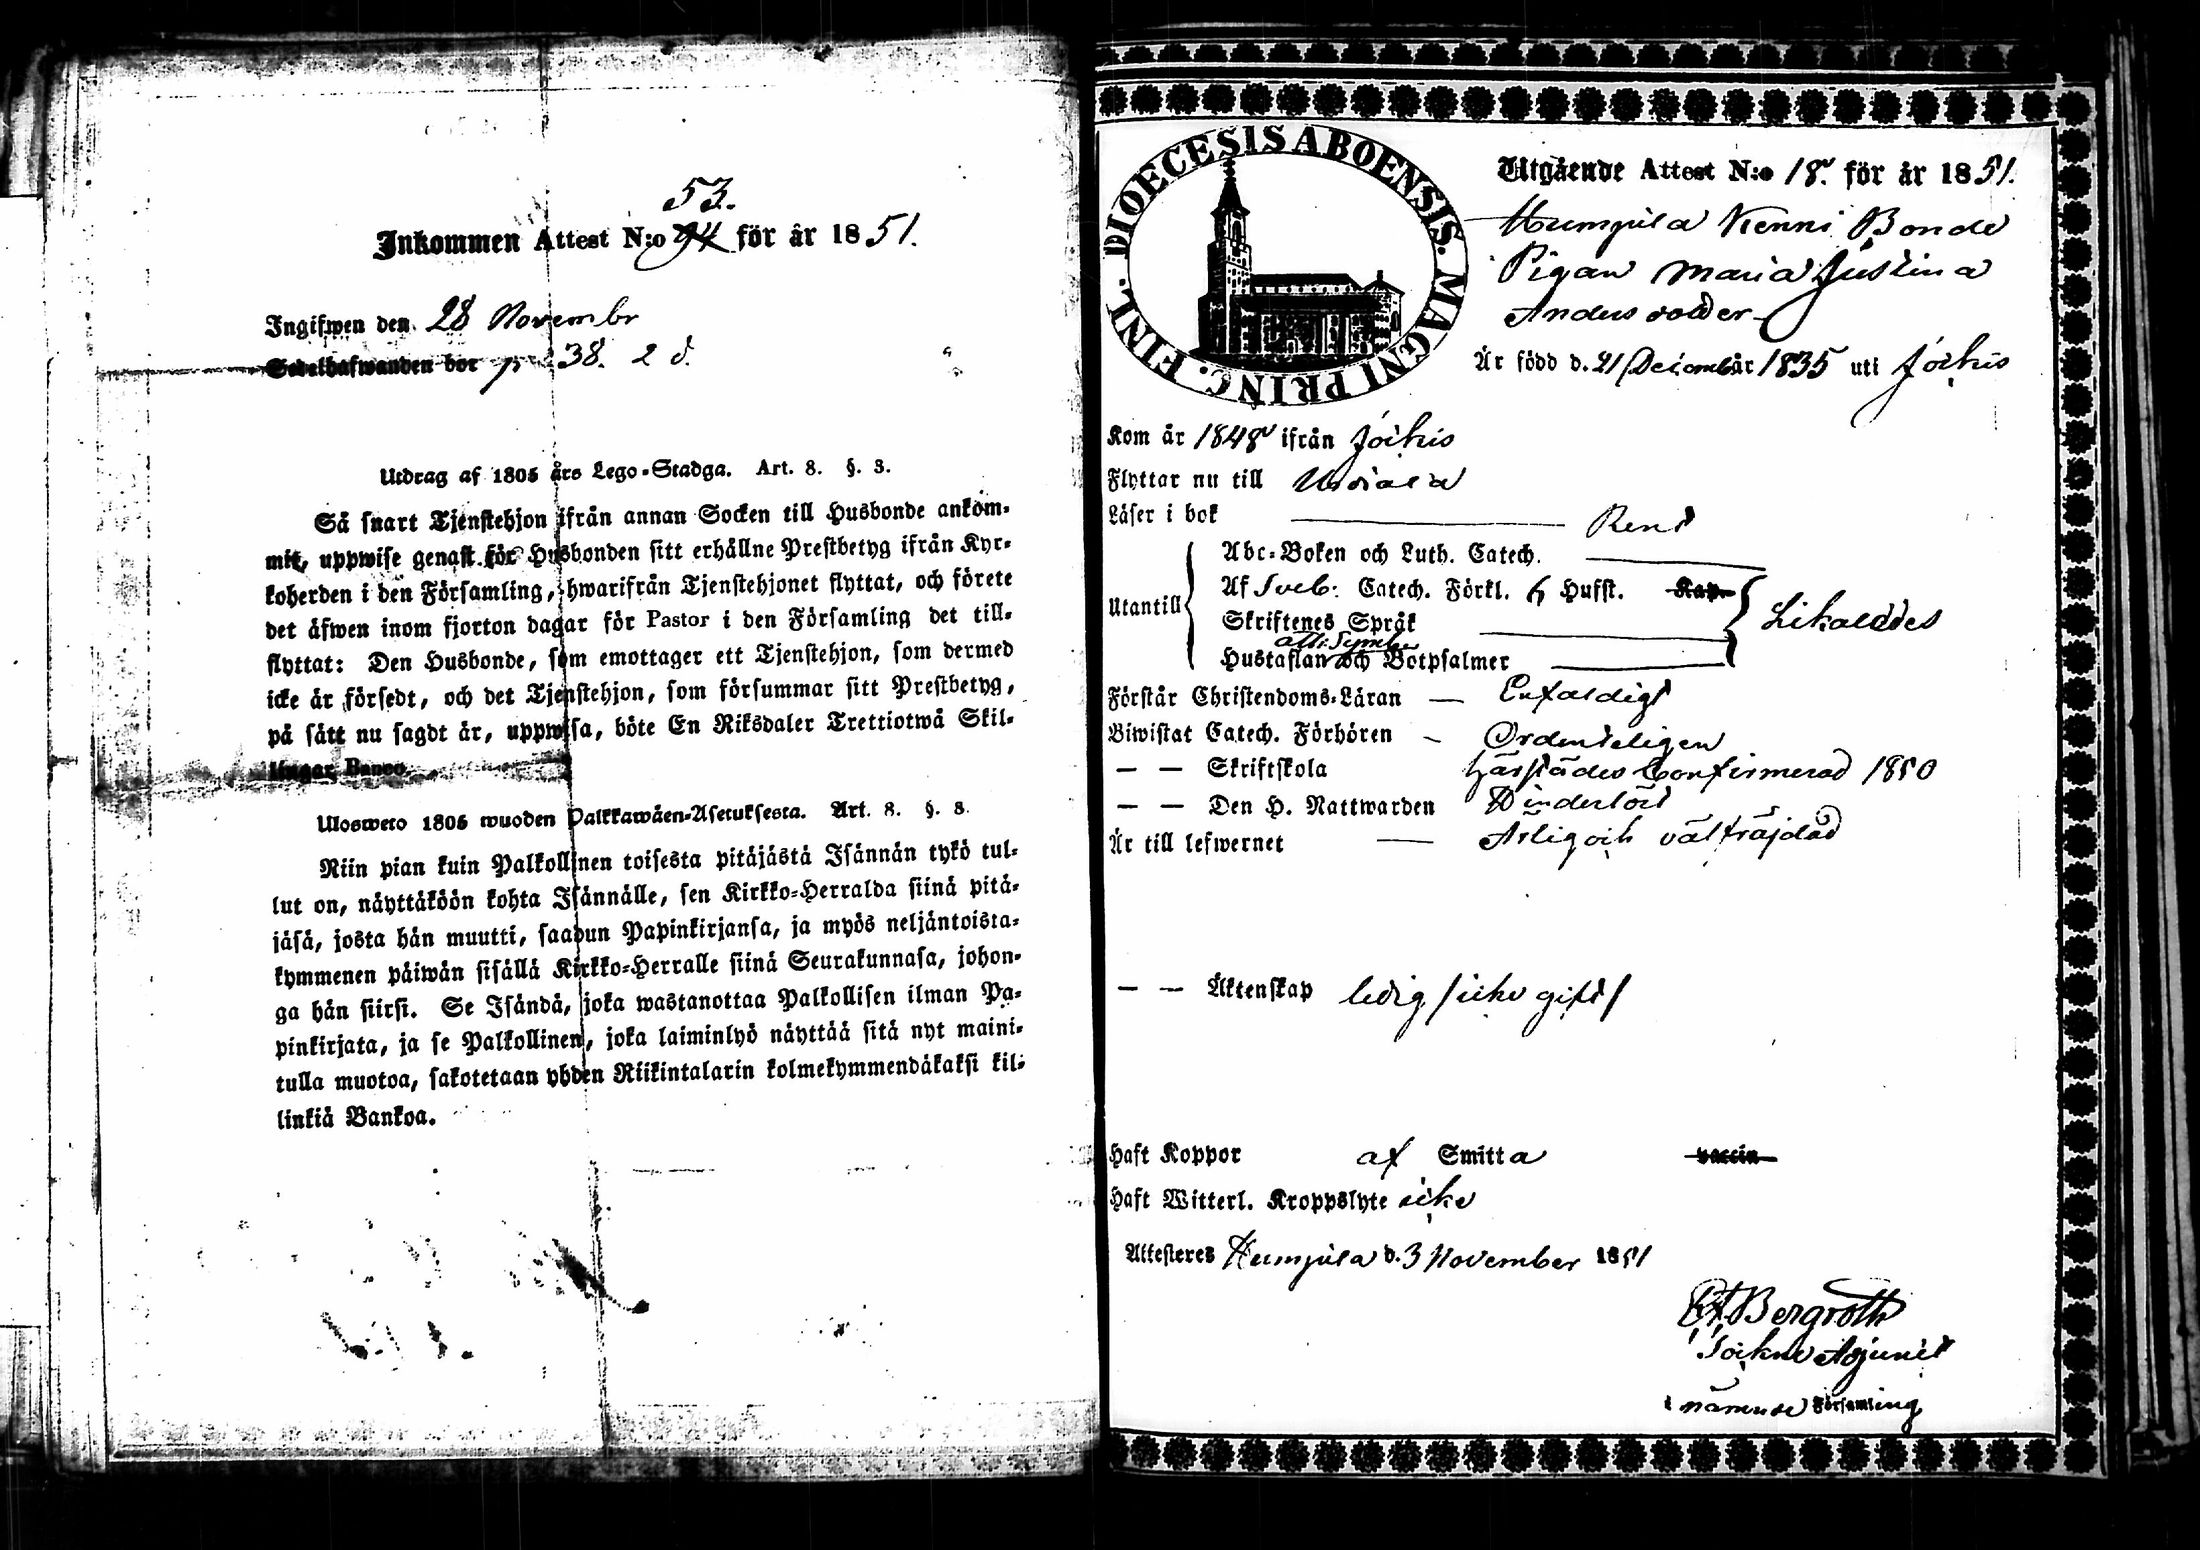 53.
Inkommen Attest N:o 94 för år 1851.
Ingifwen den 28 Novembr
Sedelhafwanden bor p 38. 2 d.
Utdrag af 1805 års Lego-Stadga. Art. 8. §. 3.
Så snart Tjenstehjon ifrån annan Socken till Husbonde ankom-
mit, uppwise genast för Husbonden sitt erhållne Prestbetyg ifrån Kyr-
koherden i den Församling, hwarifrån Tjenstehjonet flyttat, och förete
det äfwen inom fjorton dagar för Pastor i den Församling det till-
flyttat: Den Husbonde, som emottager ett Tjenstehjon, som dermed
icke är försedt, och det Tjenstehjon, som försummar sitt Prestbetyg,
på sätt nu sagdt är, uppwisa, böte En Riksdaler Trettiotwå Skil-
lingar Banco.
Ulosweto 1805 wuoden Palkkawäen-Asetuksesta. Art. 8. §. 3.
Niin pian kuin Palkollinen toisesta pitäjästä Isännän tykö tul-
lut on, näyttäköön kohta Isännälle, sen Kirkko-Herralda siinä pitä-
jäsä, josta hän muutti, saadun Papinkirjansa, ja myös neljäntoista-
kymmenen päiwän sisällä Kirkko-Herralle siinä Seurakunnasa, johon-
ga hän siirsi. Se Isändä, joka wastanottaa Palkollisen ilman Pa-
pinkirjata, ja se Palkollinen, joka laiminlyö näyttää sitä nyt maini-
tulla muotoa, sakotetaan yhden Riikintalarin kolmekymmendäkaksi kil-
linkiä Bankoa.
DIOECESIS ABOENSIS. MAGNI PRINC. FINL.
Utgående Attest N:o 18. för år 1851.
Humpila Kenni Bonde
Pigan Maria Justina
Anders dotter
Är född d. 21 Decembr år 1835 uti Jockis
Kom år 1848 ifrån Jockis
Flyttar nu till Urdiala
Läser i bok Rent
Utantill
Abc-Boken och Luth. Catech.
Af Sveb: Catech. Förkl. Hufst. Kap.
Skriftenes Språk
ath: Symb:
Hustaflan och Botpsalmer
Likaledes
Förstår Christendoms-Läran Enfaldigt
Biwistat Catech. Förhören Ordenteligen
— — Skriftskola härstädes Confirmerad 1850
— — Den H. Nattwarden
Är till lefwernet Ärlig och välfräjdad
— — Äktenskap ledig /icke gift/
Haft Koppor af Smitta vaccin
Haft Witterl. Kroppslyte icke
Attesteres Humpila d. 3 November 1851
Bergroth
Sockne Adjunct
i nämnde Församling